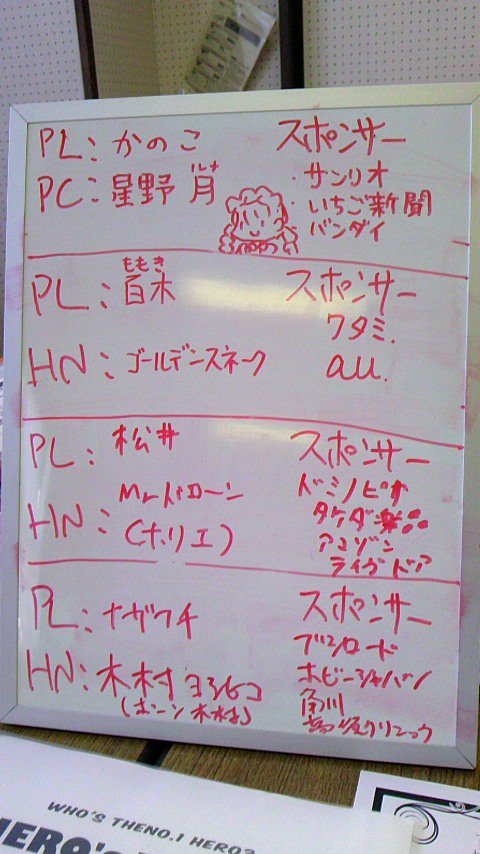 PL: かのこ
スポンサー
PC: 星野 月
ルナ
・サンリオ
・いちご新聞
・バンダイ
PL: 百木
ももき
スポンサー
ワタミ.
HN: ゴールデンスネーク
au.
PL: 松井
スポンサー
HN: Mr.ドローン
(ホリエ)
ドミノピザ
タケダ薬品
アマゾン
ライブドア
PL: ナガワチ
スポンサー
HN: 木村ヨシヒコ
(ボーン木村)
ブシロード
ホビージャパン
角川
クリニック
WHO'S THE NO.1 HERO?
HERO'S